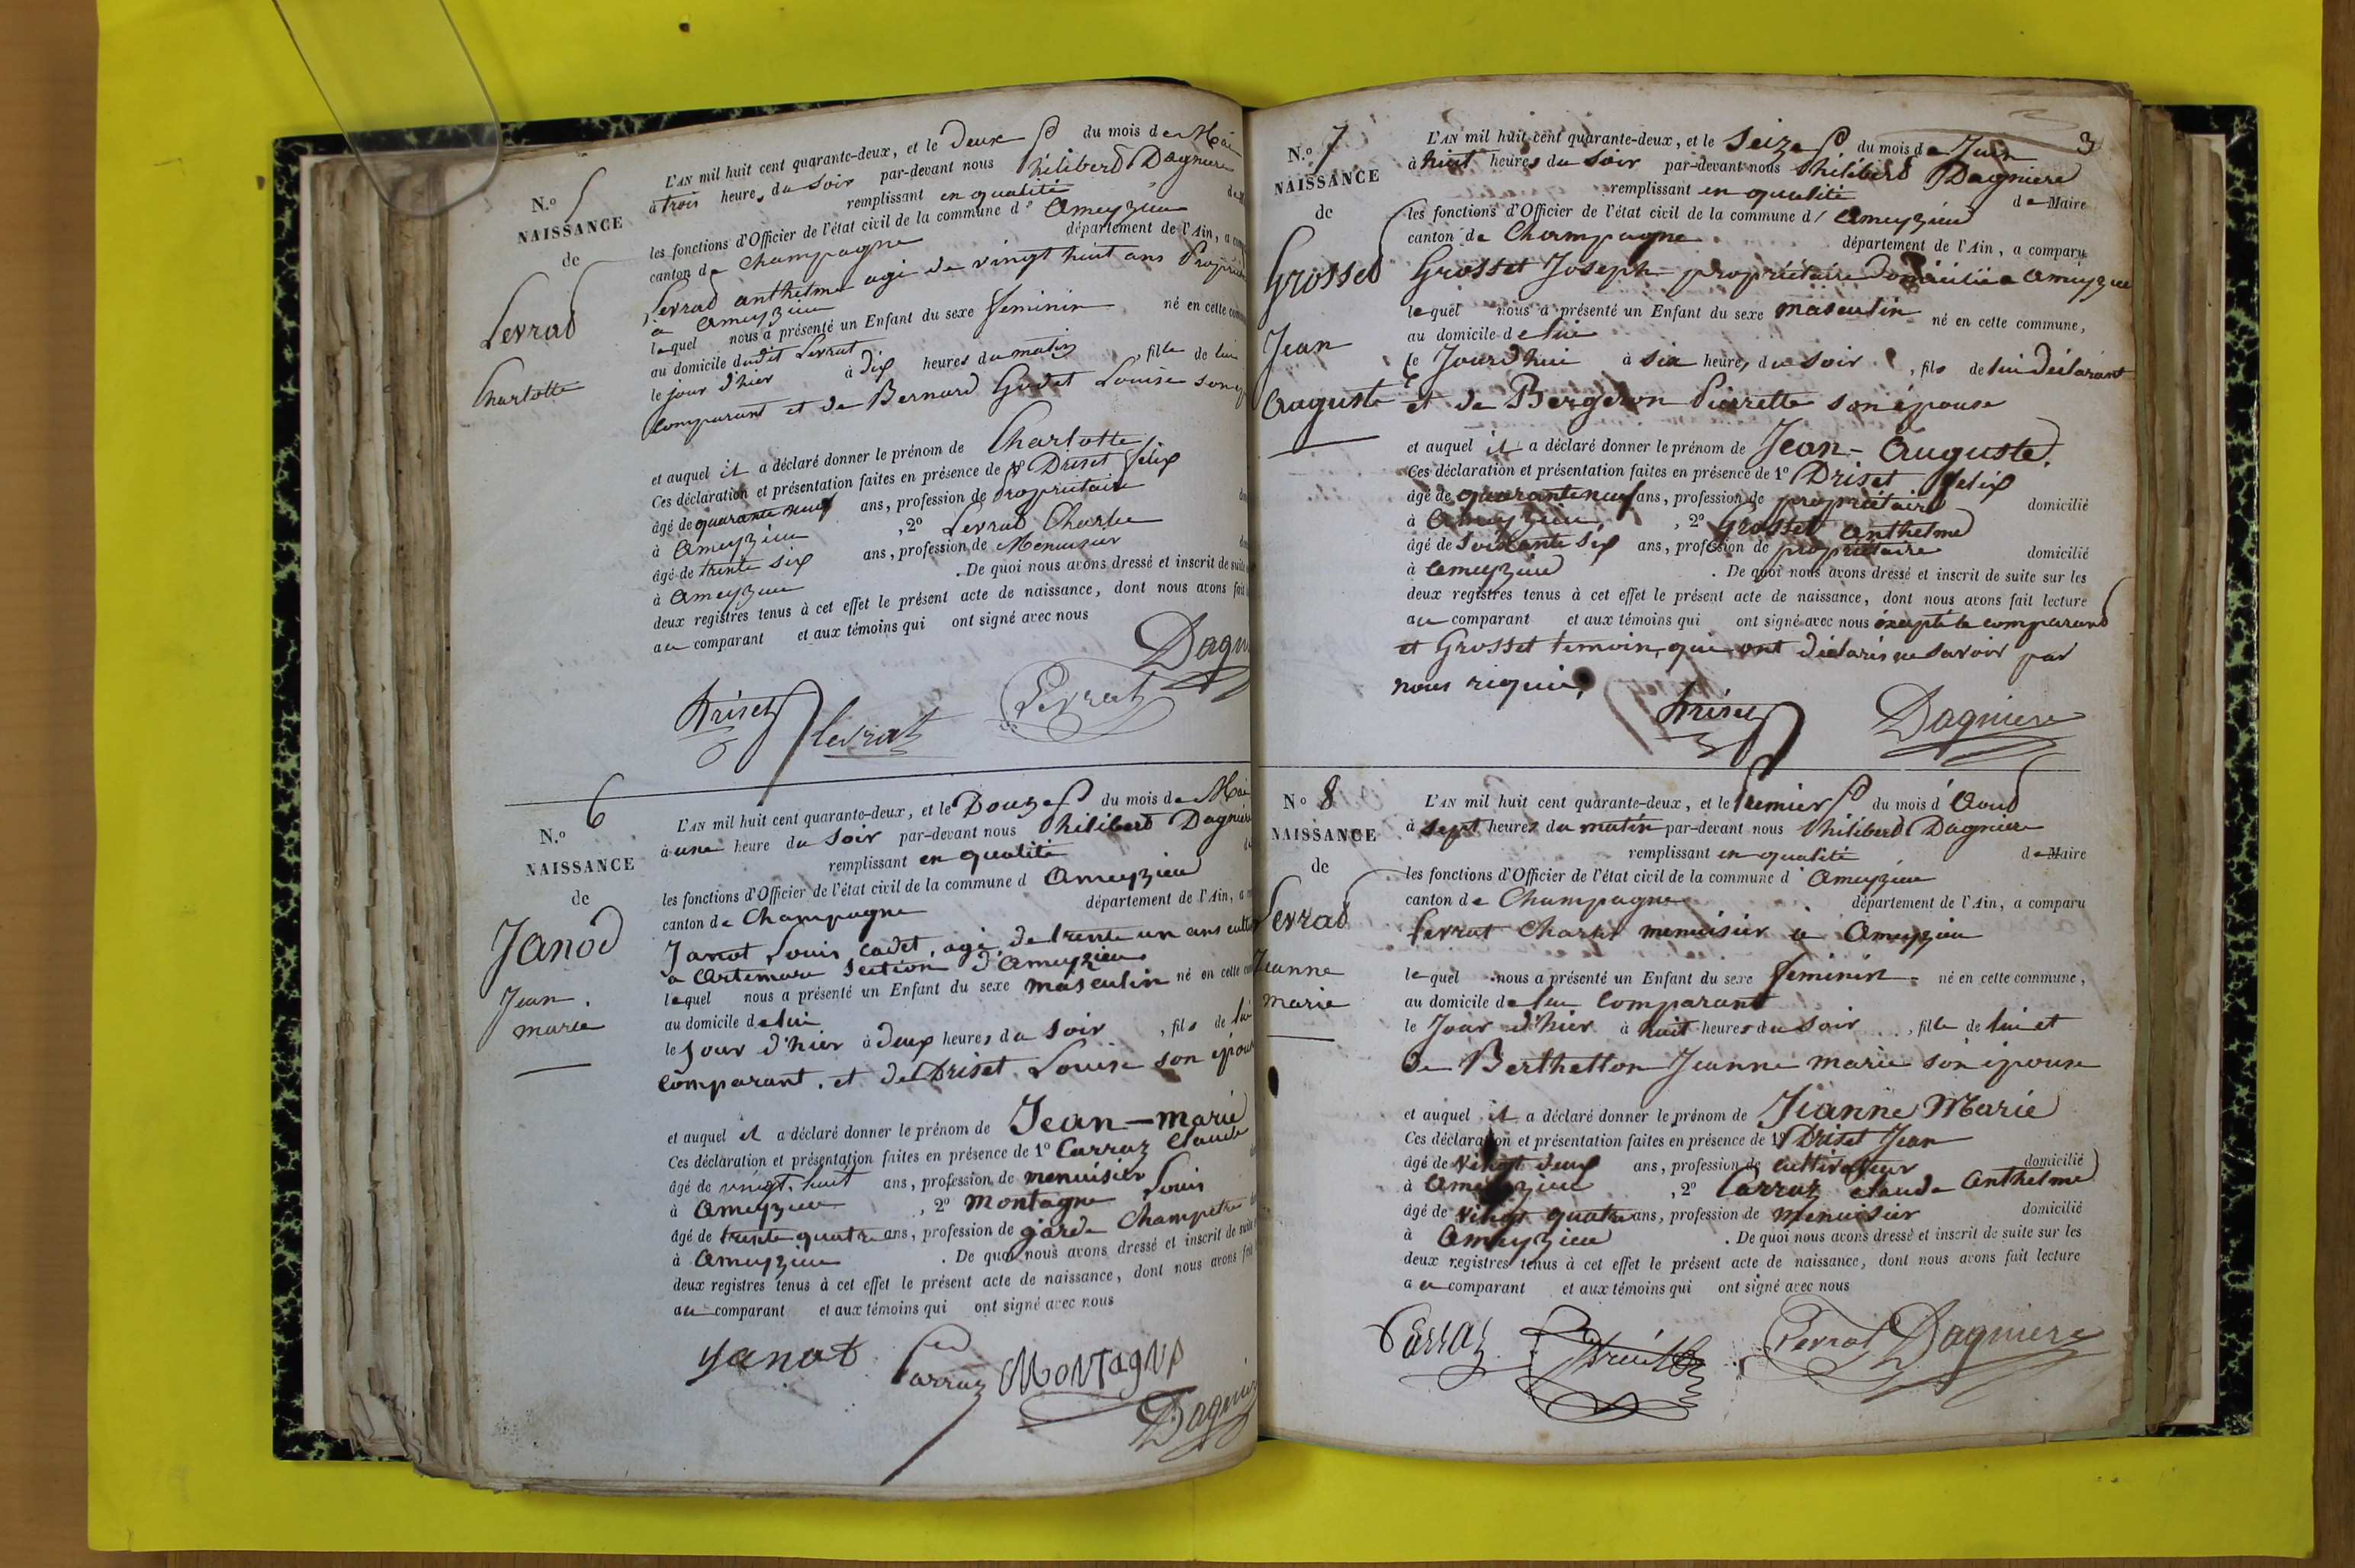 N.º 5
NAISSANCE
de
Levrat
Charlotte
L'AN mil huit cent quarante-deux, et le Deux du mois de Mai
à trois heures du soir par-devant nous Philibert Dagniere
remplissant en qualité de
les fonctions d'Officier de l'état civil de la commune d' Ameyzieu
canton de Champagne département de l'Ain, a
Levrat anthelme agé de vingt huit ans
à Ameyzieu
lequel nous a présenté un Enfant du sexe feminin né en cette
au domicile dudit Levrat
le jour d'hier à dix heures du matin, fille de lui
comparant et de Bernard Godet Louise son
et auquel il a déclaré donner le prénom de Charlotte
Ces déclaration et présentation faites en présence de 1º Driset félix
âgé de quarante neuf ans, profession de Propriétaire
à Ameyzieu, 2º Levrat Charles
âgé de trente six ans, profession de Menuisier
à Ameyzieu. De quoi nous avons dressé et inscrit de suite
deux registres tenus à cet effet le présent acte de naissance, dont nous avons fait
au comparant et aux témoins qui ont signé avec nous
Driset levrat Levrat
N.º 6
NAISSANCE
de
Janod
Jean
marie
L'AN mil huit cent quarante-deux, et le Douze du mois de Mai
à une heure du soir par-devant nous Philibert Dagniere
remplissant en qualité
les fonctions d'Officier de l'état civil de la commune d Ameyzieu
canton de Champagne département de l'Ain, a
Janot Louis cadet, agé de trente un ans
à Artemare section d'Ameyzieu
lequel nous a présenté un Enfant du sexe masculin né en cette
au domicile de lui
le Jour d'hier à deux heures du soir, fils de lui
comparant. et de Driset Louise son
et auquel il a déclaré donner le prénom de Jean-marie
Ces déclaration et présentation faites en présence de 1º Carraz Claude
âgé de vingt huit ans, profession de menuisier
à Ameyzieu, 2º Montagne Louis
âgé de trente quatre ans, profession de garde Champetre
à Ameyzieu. De quoi nous avons dressé et inscrit de suite
deux registres tenus à cet effet le présent acte de naissance, dont nous avons fait
au comparant et aux témoins qui ont signé avec nous
yanot Carraz MONTAGNE
3
N.º 7
NAISSANCE
de
Grosset
Jean
Auguste
L'AN mil huit cent quarante-deux, et le Seize du mois de Juin
à huit heures du soir par-devant nous Philibert Dagniere
remplissant en qualité de Maire
les fonctions d'Officier de l'état civil de la commune d' Ameyzieu
canton de Champagne département de l'Ain, a comparu
Grosset Joseph propriétaire Domicilié a Ameyzieu
lequel nous a présenté un Enfant du sexe masculin né en cette commune,
au domicile de lui
le Jourd'hui à six heures du soir, fils de lui déclarant
et de Bergeron Pierrette son épouse
et auquel il a déclaré donner le prénom de Jean-Auguste.
Ces déclaration et présentation faites en présence de 1º Driset félix
âgé de quarante neuf ans, profession de propriétaire domicilié
à Ameyzieu, 2º Grosset Anthelme
âgé de soixante six ans, profession de propriétaire domicilié
à Ameyzieu. De quoi nous avons dressé et inscrit de suite sur les
deux registres tenus à cet effet le présent acte de naissance, dont nous avons fait lecture
au comparant et aux témoins qui ont signé avec nous éxcepté le comparant
et Grosset temoin, qui ont déclarés ne savoir par
nous riquis,
Driset Dagniere
Nº 8
NAISSANCE
de
Levrat
Jeanne
marie
L'AN mil huit cent quarante-deux, et le Premier du mois d' Aout
à sept heures du matin par-devant nous Philibert Dagniere
remplissant en qualité de Maire
les fonctions d'Officier de l'état civil de la commune d' Ameyzieu
canton de Champagne département de l'Ain, a comparu
Levrat Charles menuisier à Ameyzieu
lequel nous a présenté un Enfant du sexe feminin né en cette commune,
au domicile de lui comparant
le Jour d'hier à huit heures du soir, fille de lui et
De Berthetton Jeanne marie son épouse
et auquel il a déclaré donner le prénom de Jeanne Marie
Ces déclaration et présentation faites en présence de 1º Driset Jean
âgé de vingt deux ans, profession de cultivateur domicilié
à Ameyzieu, 2º Carraz claude Anthelme
âgé de vingt quatre ans, profession de menuisier domicilié
à Ameyzieu. De quoi nous avons dressé et inscrit de suite sur les
deux registres tenus à cet effet le présent acte de naissance, dont nous avons fait lecture
au comparant et aux témoins qui ont signé avec nous
Carraz Levrat Dagniere